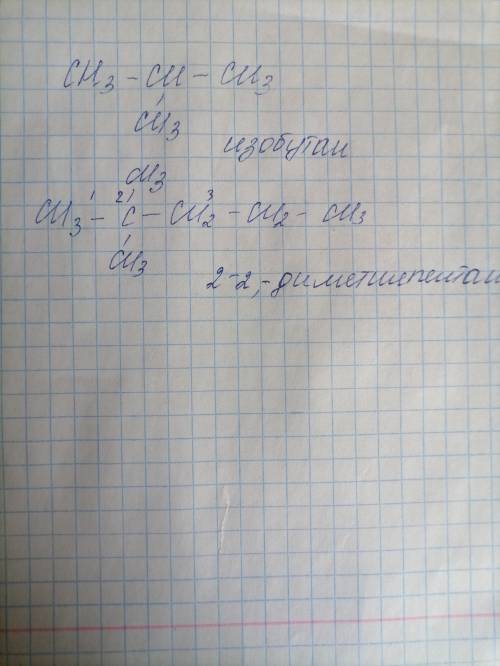 CH3 - CH - CH3
CH3
изобутан
CH3
1 2 3
CH3 - C - CH2 - CH2 - CH3
CH3
2-2,-диметилпентан